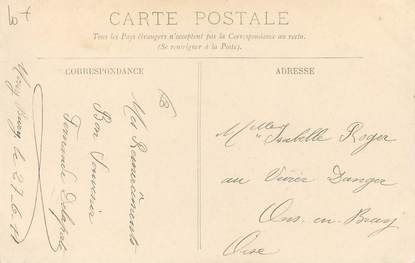 CARTE POSTALE
Tous les Pays étrangers n'acceptent pas la Correspondance au recto.
(Se renseigner à la Poste).
CORRESPONDANCE
ADRESSE
Mes Remerciements
Bon Souvenir
le 27-6
Mlle Isabelle Roger
au Vivier Danger
Ons-en-Bray
Oise